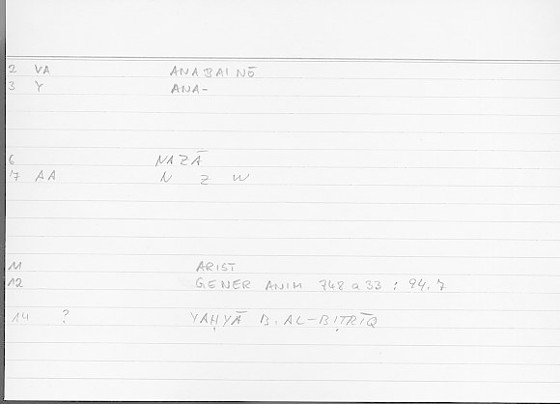 2 VA ANABAINŌ
3 Y ANA-
6 NAZĀ
7 AA N Z W
11 ARIST
12 GENER ANIM 748 a 33 : 94.7
14 ? YAḤYĀ B. AL-BIṬRĪQ